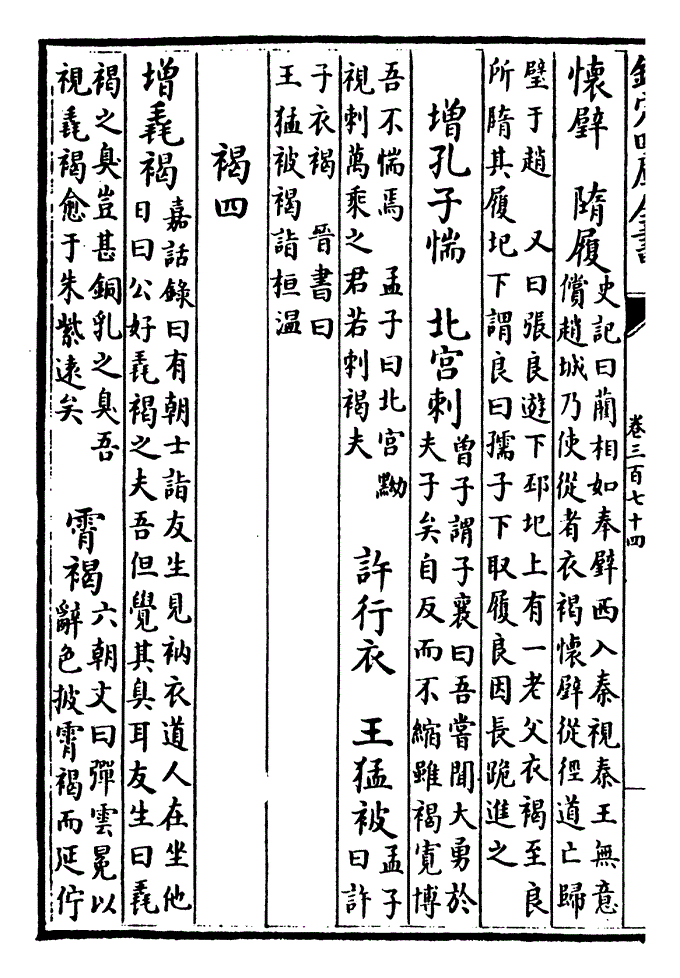 欽定四庫全書
卷三百七十四
懷璧　隋履史記曰藺相如奉璧西入秦視秦王無意
償趙城乃使從者衣褐懷璧從徑道亡歸
璧于趙　又曰張良遊下邳圯上有一老父衣褐至良
所隋其履圯下謂良曰孺子下取履良因長跪進之
增孔子惴　北宮刺曾子謂子襄曰吾嘗聞大勇於
夫子矣自反而不縮雖褐寬博
吾不惴焉　孟子曰北宮黝
視刺萬乘之君若刺褐夫
許行衣　王猛被孟子
曰許
子衣褐　晉書曰
王猛被褐詣桓温
褐四
增毳褐嘉話錄曰有朝士詣友生見衲衣道人在坐他
日曰公好毳褐之夫吾但覺其臭耳友生曰毳
褐之臭豈甚銅乳之臭吾
視毳褐愈于朱紫遠矣
霄褐六朝文曰彈雲冕以
辭色披霄褐而延佇